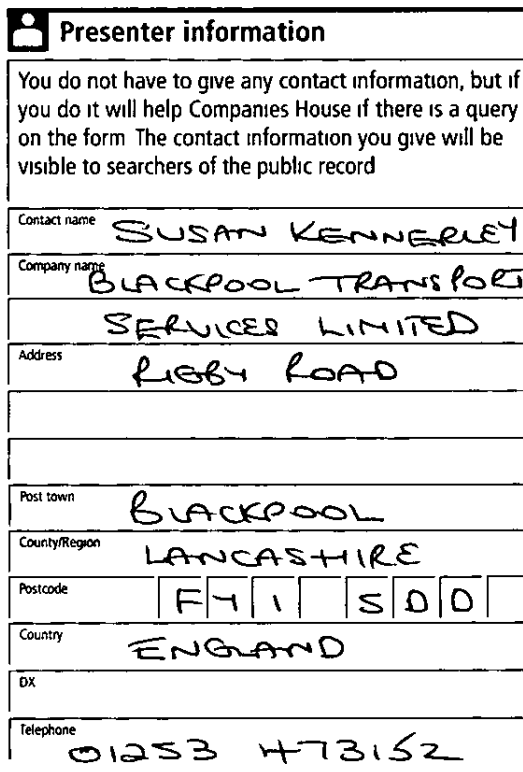 Presenter information
You do not have to give any contact information, but if
you do it will help Companies House if there is a query
on the form The contact information you give will be
visible to searchers of the public record
Contact name SUSAN KENNERLEY
Company name BLACKPOOL TRANSPORT
SERVICES LIMITED
Address RIGBY ROAD
Post town BLACKPOOL
County/Region LANCASHIRE
Postcode FY1 5DD
Country ENGLAND
DX
Telephone 01253 473152